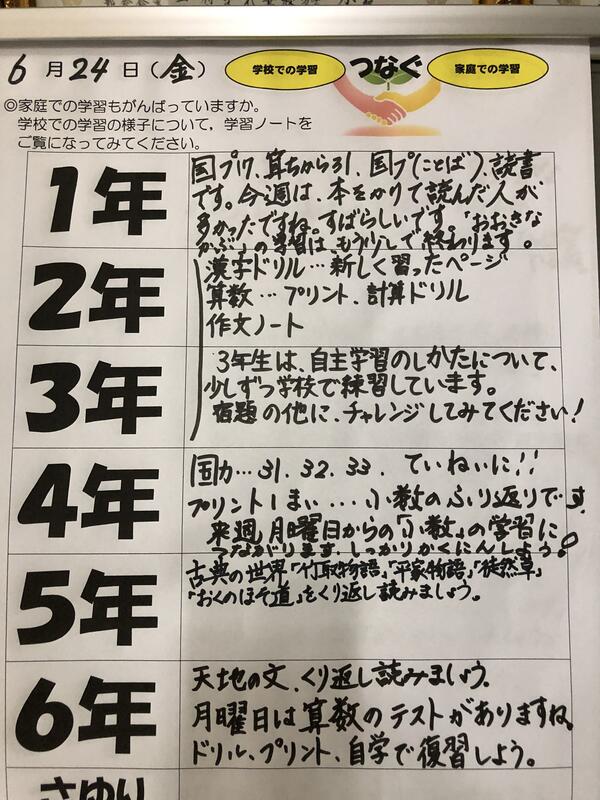 6月24日(金)
学校での学習
つなぐ
家庭での学習
◎家庭での学習もがんばっていますか。
学校での学習の様子について，学習ノートを
ご覧になってみてください。
1年
国プ17、算ちから31、国プ(ことば)、読書
です。今週は、本をかりて読んだ人が
多かったですね。すばらしいです。「おおきな
かぶ」の学習は、もう少しで終わります。
2年
漢字ドリル…新しく習ったページ
算数…プリント、計算ドリル
作文ノート
3年
3年生は、自主学習のしかたについて、
少しずつ学校で練習しています。
宿題の他に、チャレンジしてみてください!
4年
国力…31.32.33. ていねいに!!
プリント1まい...小数のふり返りです.
来週月曜日からの「小数」の学習に
つながります.しっかりかくにんしよう!
5年
古典の世界「竹取物語」「平家物語」「徒然草」
「おくのほそ道」をくり返し読みましょう。
6年
天地の文、くり返し読みましょう。
月曜日は算数のテストがありますね。
ドリル、プリント、自学で復習しよう。
さゆり